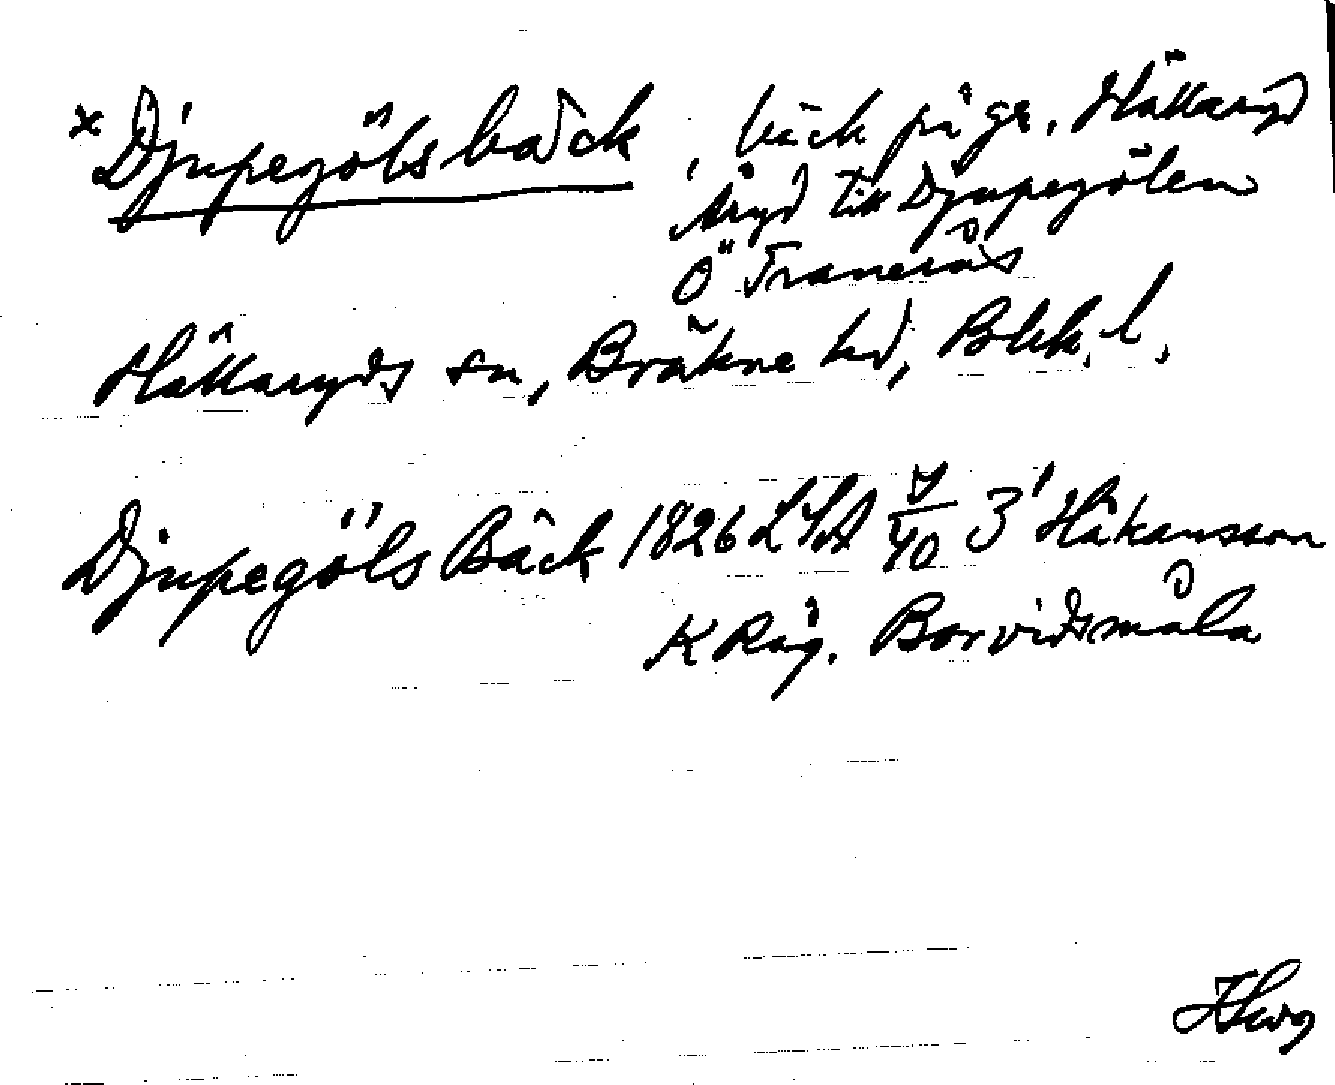 × Djupegölsbäck, bäck på gr. Hällaryd
Åryd till Djupegölen
Ö Tranesås
Hällaryds sn, Bräkne hd, Blek. l.
Djupegöls Bäck 1826 LSA 3 Håkansson
K Råg. Borvidsmåla